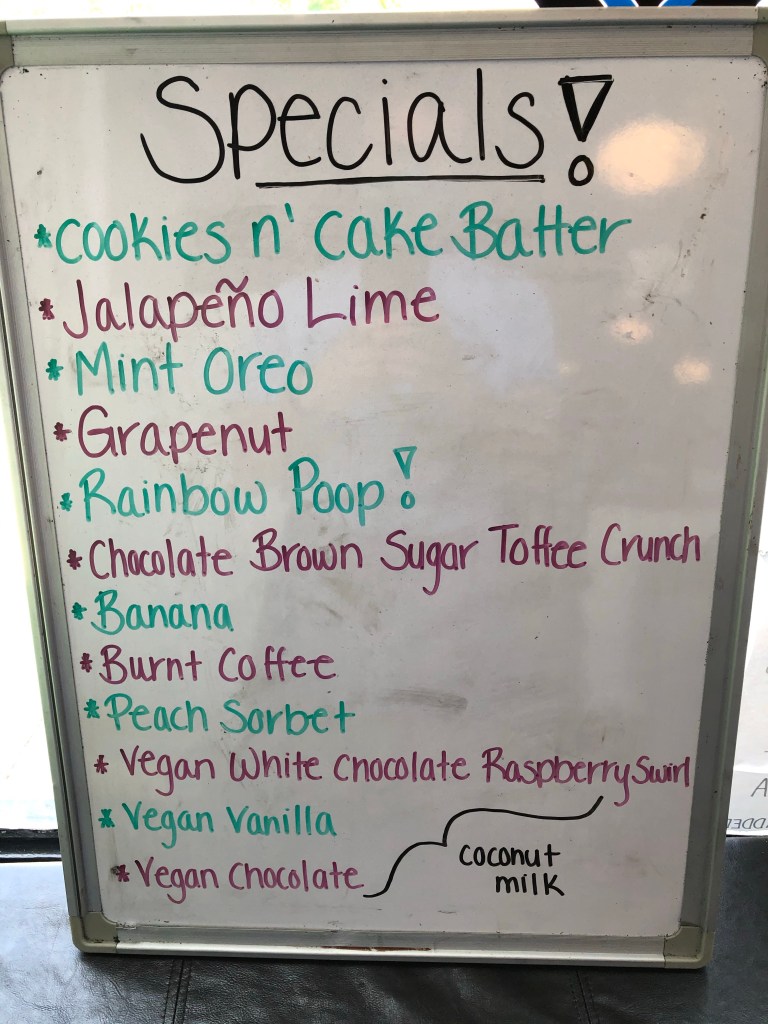 Specials!
*Cookies n' Cake Batter
*Jalapeño Lime
*Mint Oreo
*Grapenut
*Rainbow Poop!
*Chocolate Brown Sugar Toffee Crunch
*Banana
*Burnt Coffee
*Peach Sorbet
*Vegan White Chocolate Raspberry Swirl
*Vegan Vanilla
*Vegan Chocolate
coconut
milk